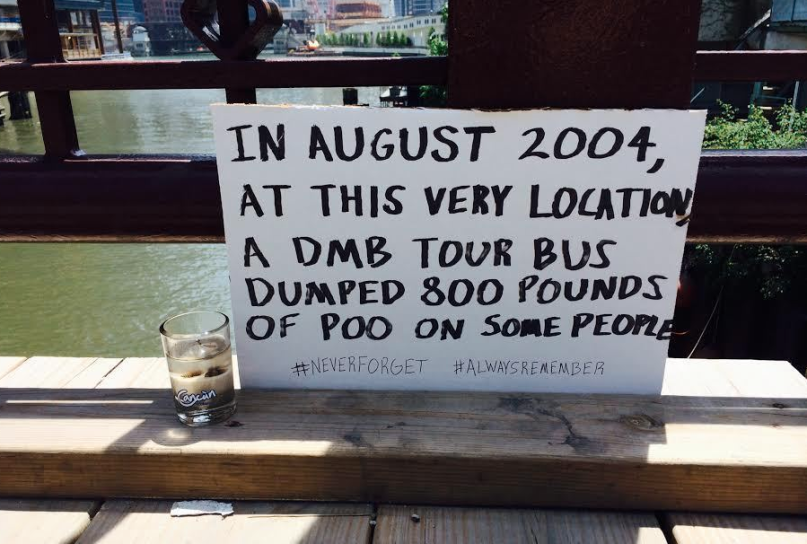 IN AUGUST 2004,
AT THIS VERY LOCATION
A DMB TOUR BUS
DUMPED 800 POUNDS
OF POO ON SOME PEOPLE
#NEVERFORGET #ALWAYSREMEMBER
Cancún